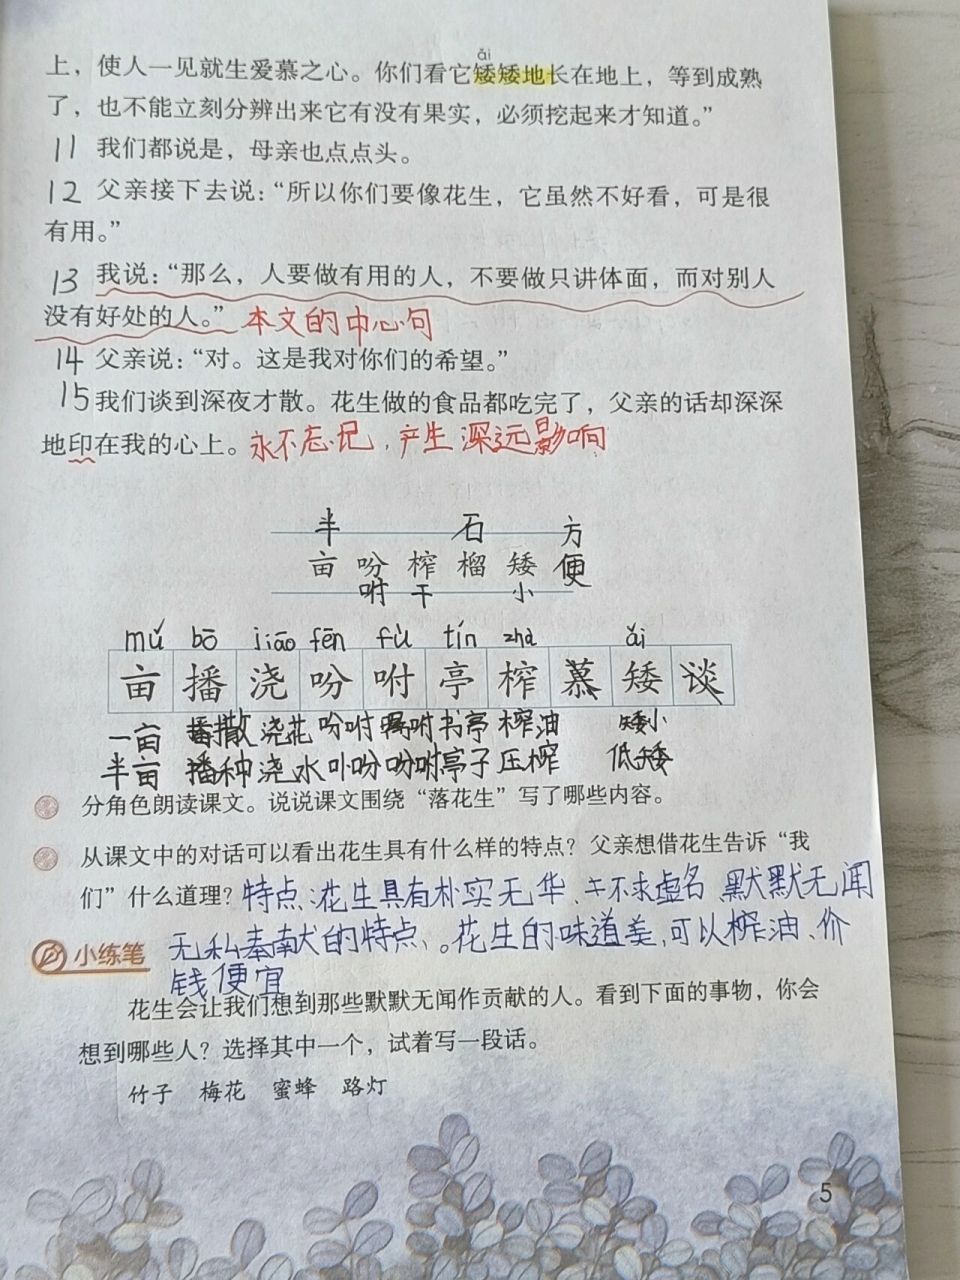 ǎi
上，使人一见就生爱慕之心。你们看它矮矮地长在地上，等到成熟
了，也不能立刻分辨出来它有没有果实，必须挖起来才知道。”
11 我们都说是，母亲也点点头。
12 父亲接下去说：“所以你们要像花生，它虽然不好看，可是很
有用。”
13 我说：“那么，人要做有用的人，不要做只讲体面，而对别人
没有好处的人。” 本文的中心句
14 父亲说：“对。这是我对你们的希望。”
15 我们谈到深夜才散。花生做的食品都吃完了，父亲的话却深深
地印在我的心上。永不忘记，产生深远影响
半 石 方
亩 吩 榨 榴 矮 便
咐 干 小
mǔ bō jiāo fēn fù tín zhà ǎi
亩 播 浇 吩 咐 亭 榨 慕 矮 谈
一亩 播撒 浇花 吩咐 嘱咐 书亭 榨油 矮小
半亩 播种 浇水 吩咐 亭子 压榨 低矮
分角色朗读课文。说说课文围绕“落花生”写了哪些内容。
从课文中的对话可以看出花生具有什么样的特点？父亲想借花生告诉“我
们”什么道理？特点：花生具有朴实无华、不求虚名、默默无闻
无私奉献的特点、。花生的味道美，可以榨油、价
小练笔
钱便宜
花生会让我们想到那些默默无闻作贡献的人。看到下面的事物，你会
想到哪些人？选择其中一个，试着写一段话。
竹子 梅花 蜜蜂 路灯
5